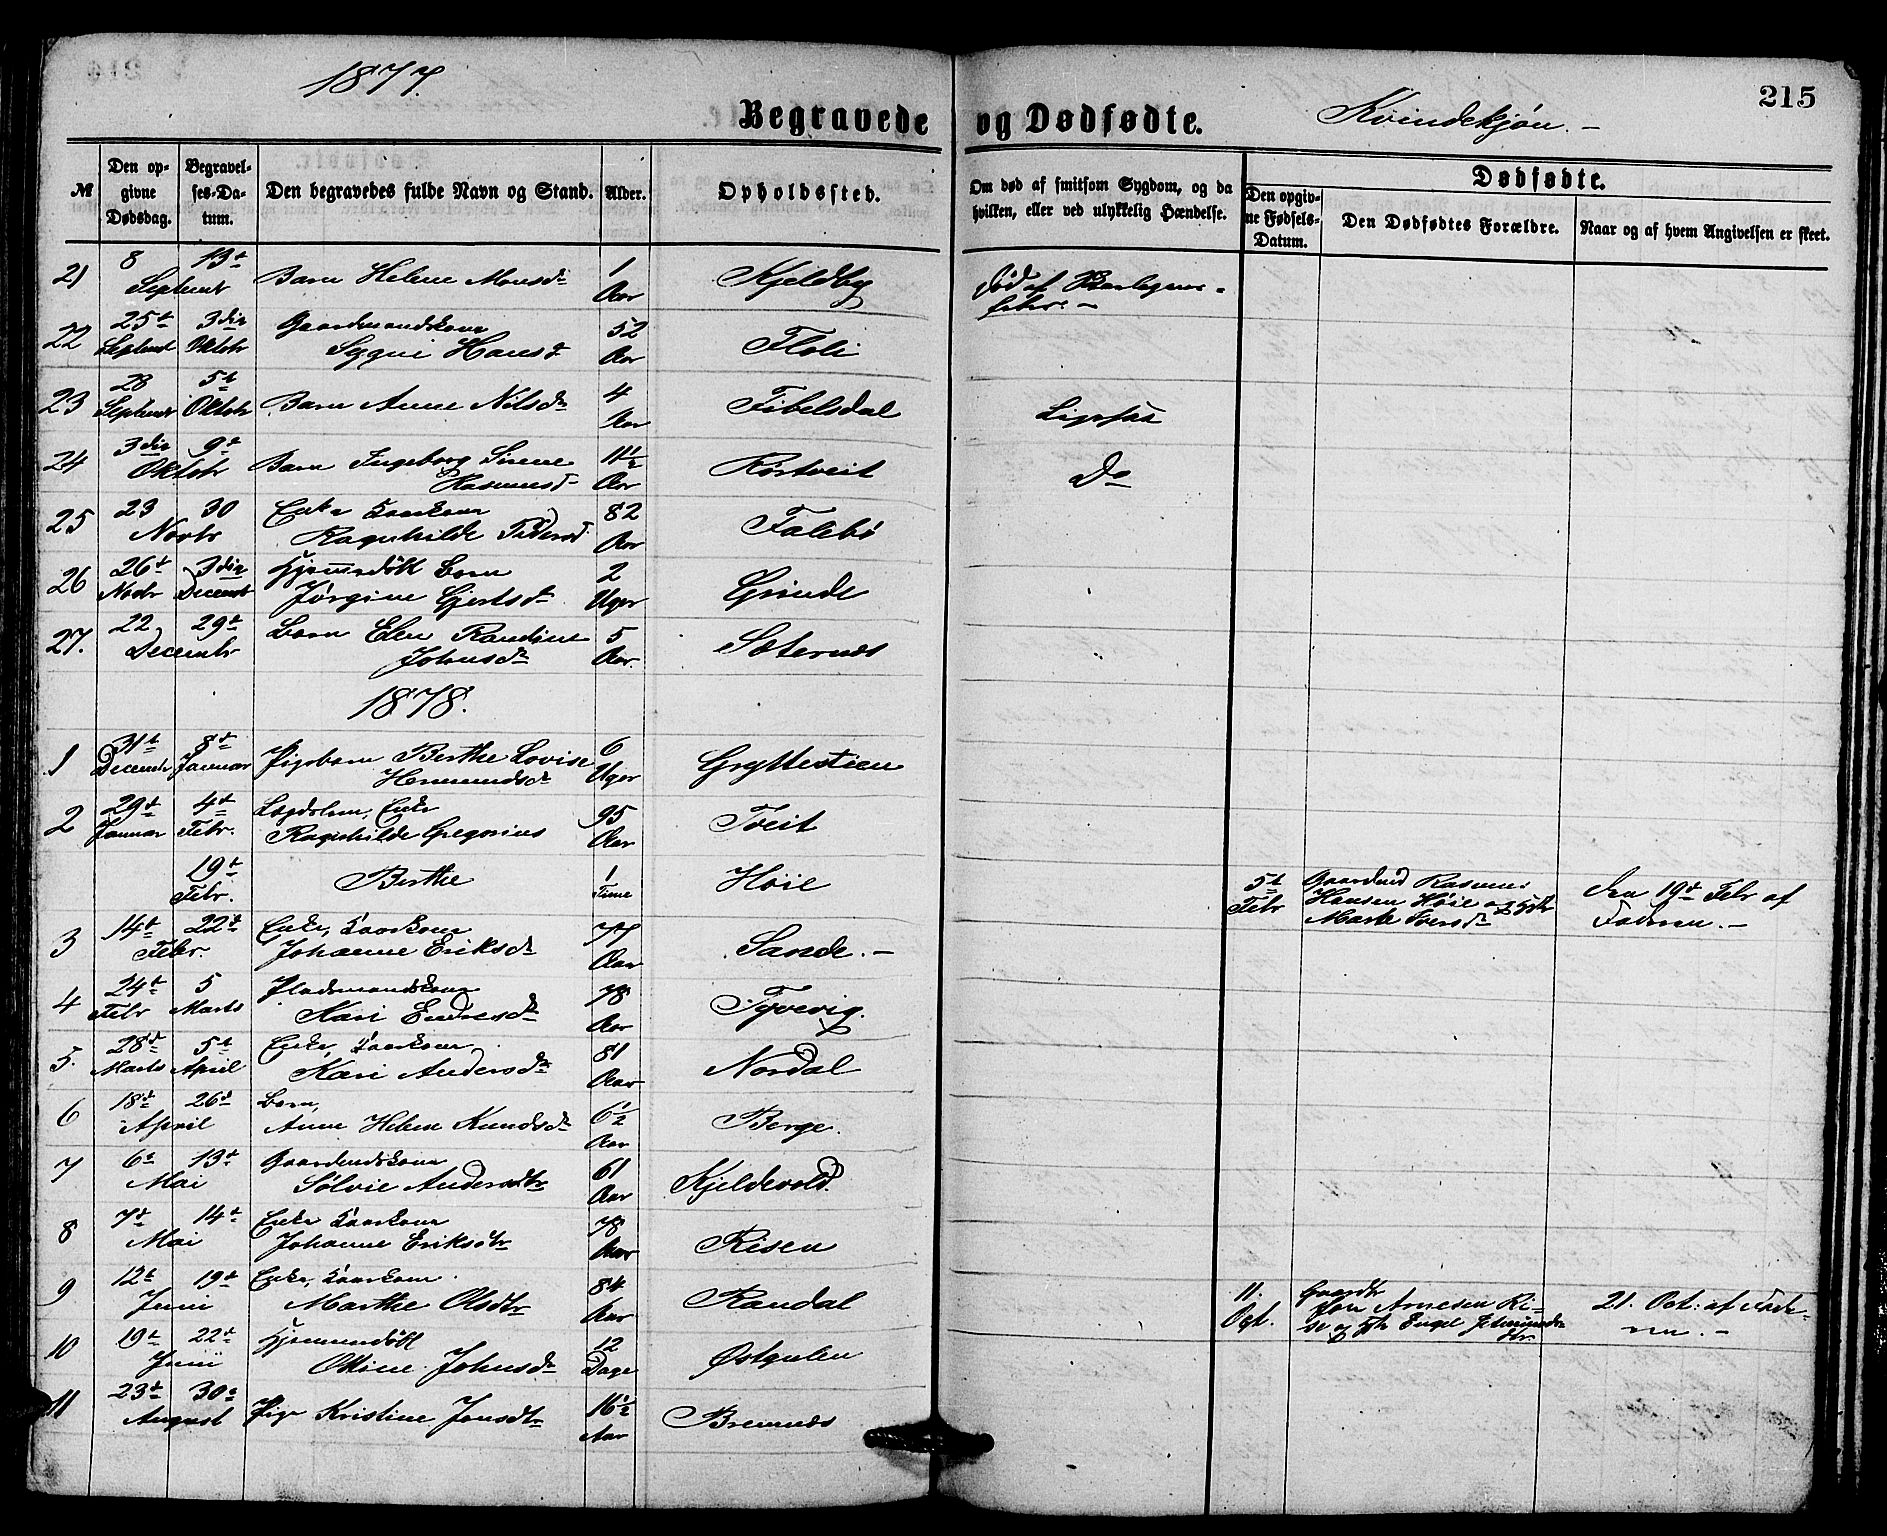 1877.
215
Begravede og Dødfødte.
Kvindekjøn. -
№
Den opgivne Dødsdag.
Begravelses-Datum.
Den begravedes fulde Navn og Stand.
Alder.
Opholdssted.
Om død af smitsom Sygdom, og da hvilken, eller ved ulykkelig Hændelse.
Dødfødte.
Den opgivne Fødsels-Datum.
Den Dødfødtes Forældre.
Naar og af hvem Angivelsen er skeet.
21 8 13de Septembr Barn Helene Monsdr 1 Aar Kjeldby Død af
22 25de Septembr 3die Oktobr Gaardmandskone Hansdr 52 Aar Floli
23 28 Septembr 5te Oktobr Barn Anne Nilsdr 4 Aar Fibelsdal Ligesaa
24 3die 9de Oktobr Barn Ingeborg Sirene Rasmusdr 11½ Aar Rørtveit Do
25 23 30 Novbr Enke Kaarkone Ragnhilde 82 Aar Falebø
26 26de Novbr 3die Decembr Hjemmedøbt Barn Jørgine Gjertsdr 2 Uger Grinde
27. 22 29de Decembr Barn Elen Randine Johnsdr 5 Aar. Sæternes
1878.
1 31te Decembr 8de Januar Pigebarn Berthe Lovise 6 Uger Gryttestien
2 29de Januar 4de Febr. Enke Ragnhilde Gregorius 95 Aar Tveit
19de Febr. Berthe 1 Time Høie 5te Febr Gaardmd Rasmus Hansen Høie og Hstr Marte Iversdr Den 19de Febr af Faderen. -
3 14de 22de Febr. Enke, Kaarkone Johanne Eriksdr 77 Aar Sande. -
4 24de Febr 5 Marts Pladsmandskone Kari Endresdr 78 Aar Tyvevig.
5. 28de Marts 5te April Enke, Kaarkone Kari Andersdr 81 Aar Nordal
6 18de 26de April Barn, Anne Helene Knudsdr 6½ Aar Berge.
7 6te 13de Mai Gaardmdskone Sølvie Andersdtr 61 Aar Kjeldevold.
8 7de 14de Mai Enke Kaarkone Johanne Eriksdtr 78 Aar Risen
9 12te 19de Juni Enke, Kaarkone Marthe Olsdtr 84 Aar Randal 11. Oct. Gaardbr Arnesen Rise og Hstr Engel 21. Oct: af Faderen. -
10 19de 22de Juni Hjemmedøbt Oline Johnsdr 12 Dage Østgulen
11 23de 30te August Pige Kristine Jensdtr 16½ Aar Bremnes